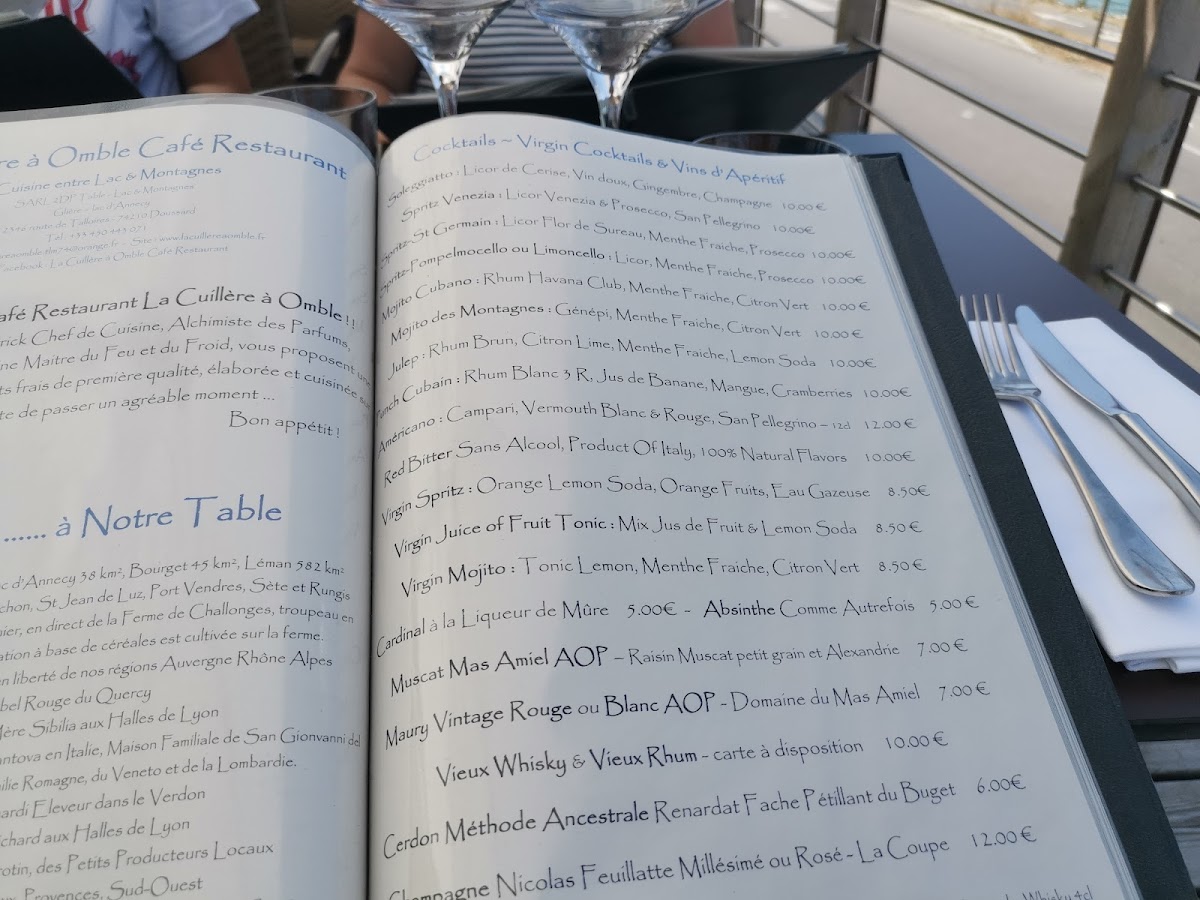 re à Omble Café Restaurant
Cuisine entre Lac & Montagnes
SARL 2DP Table - Lac & Montagnes
Glière - lac d'Annecy
route de Talloires - 74210 Doussard
Tél : +33 450 443 071
- Site : www.lacuillereaomble.fr
Facebook : La Cuillère à Omble Café Restaurant
afé Restaurant La Cuillère à Omble ! !
rick Chef de Cuisine, Alchimiste des Parfums,
ne Maitre du Feu et du Froid, vous proposent une
ts frais de première qualité, élaborée et cuisinée sur
te de passer un agréable moment ...
Bon appétit !
...... à Notre Table
c d'Annecy 38 km², Bourget 45 km², Léman 582 km²
chon, St Jean de Luz, Port Vendres, Sète et Rungis
nier, en direct de la Ferme de Challonges, troupeau en
ation à base de céréales est cultivée sur la ferme.
en liberté de nos régions Auvergne Rhône Alpes
bel Rouge du Quercy
Mère Sibilia aux Halles de Lyon
antova en Italie, Maison Familiale de San Gionvanni del
ilie Romagne, du Veneto et de la Lombardie.
ardi Eleveur dans le Verdon
ichard aux Halles de Lyon
rotin, des Petits Producteurs Locaux
Provences, Sud-Ouest
Cocktails ~ Virgin Cocktails & Vins d'Apéritif
Soleggiatto : Licor de Cerise, Vin doux, Gingembre, Champagne 10.00€
Spritz Venezia : Licor Venezia & Prosecco, San Pellegrino 10.00€
Spritz St Germain : Licor Flor de Sureau, Menthe Fraiche, Prosecco 10.00€
Spritz Pompelmocello ou Limoncello : Licor, Menthe Fraiche, Prosecco 10.00€
Mojito Cubano : Rhum Havana Club, Menthe Fraiche, Citron Vert 10.00€
Mojito des Montagnes : Génépi, Menthe Fraiche, Citron Vert 10.00€
Julep : Rhum Brun, Citron Lime, Menthe Fraiche, Lemon Soda 10.00€
Punch Cubain : Rhum Blanc 3 R, Jus de Banane, Mangue, Cramberries 10.00€
Américano : Campari, Vermouth Blanc & Rouge, San Pellegrino – 12cl 12.00€
Red Bitter Sans Alcool, Product Of Italy, 100% Natural Flavors 10.00€
Virgin Spritz : Orange Lemon Soda, Orange Fruits, Eau Gazeuse 8.50€
Virgin Juice of Fruit Tonic : Mix Jus de Fruit & Lemon Soda 8.50€
Virgin Mojito : Tonic Lemon, Menthe Fraiche, Citron Vert 8.50€
Cardinal à la Liqueur de Mûre 5.00€ - Absinthe Comme Autrefois 5.00€
Muscat Mas Amiel AOP – Raisin Muscat petit grain et Alexandrie 7.00€
Maury Vintage Rouge ou Blanc AOP - Domaine du Mas Amiel 7.00€
Vieux Whisky & Vieux Rhum - carte à disposition 10.00€
Cerdon Méthode Ancestrale Renardat Fache Pétillant du Buget 6.00€
Champagne Nicolas Feuillatte Millésimé ou Rosé - La Coupe 12.00€
Whisky 4cl